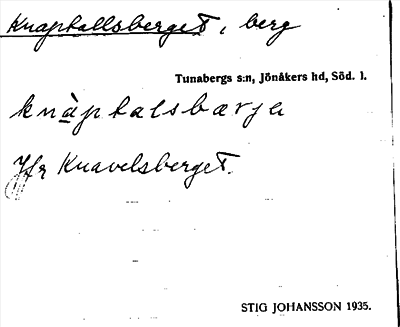 Knaptallsberget, berg
Tunabergs s:n, Jönåkers hd, Söd. l.
knàptalsbærje
Jfr Knavelsberget.
STIG JOHANSSON 1935.